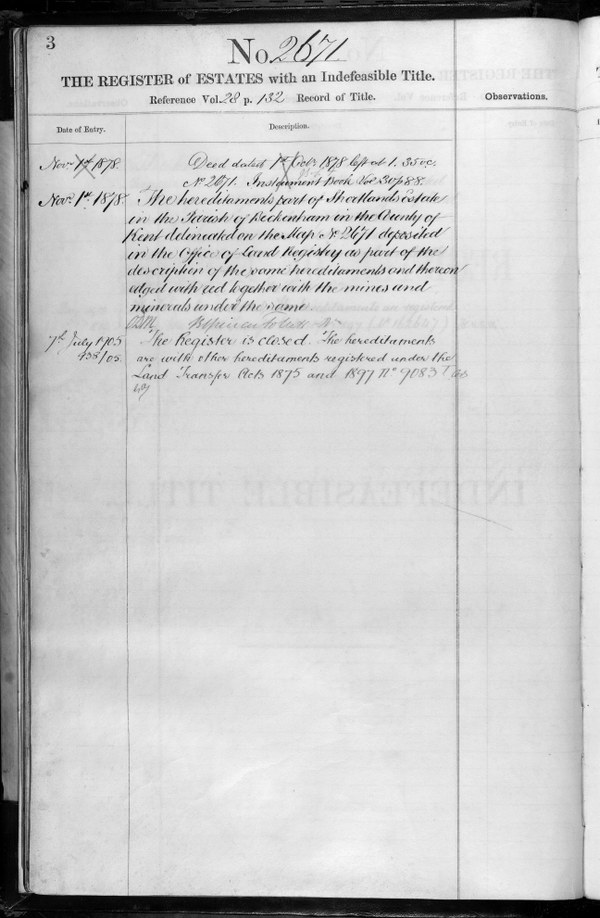 3
No 2671
THE REGISTER of ESTATES with an Indefeasible Title.
Reference Vol. 28 p. 132 Record of Title.
Observations.
Date of Entry.
Description.
Novr 1st 1878.
Deed dated 1st Octr 1878 left at 1.35
No 2671. Instrument Book Vol 30 p 88.
Novr 1st 1878.
The hereditaments part of Shortlands Estate
in the Parish of Beckenham in the County of
Kent delineated on the Map No 2671 deposited
in the Office of Land Registry as part of the
description of the same hereditaments and thereon
edged with red together with the mines and
minerals under the same
7th July 1905
The Register is closed. The hereditaments
are with other hereditaments registered under the
Land Transfer Acts 1875 and 1897 No 9083